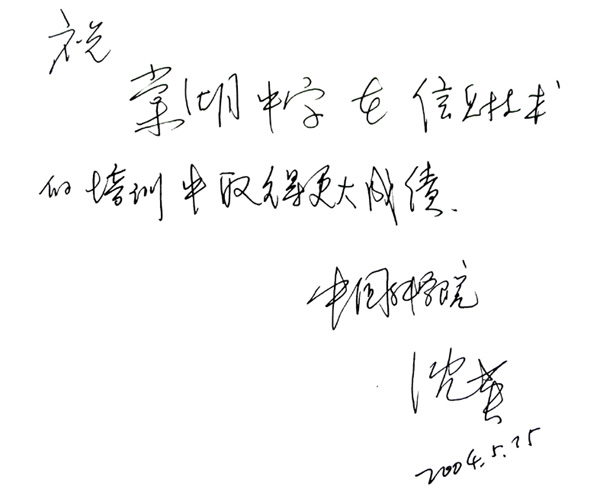 祝
棠湖中学在信息技术
的培训中取得更大成绩.
中国科学院
沈
2004.5.25